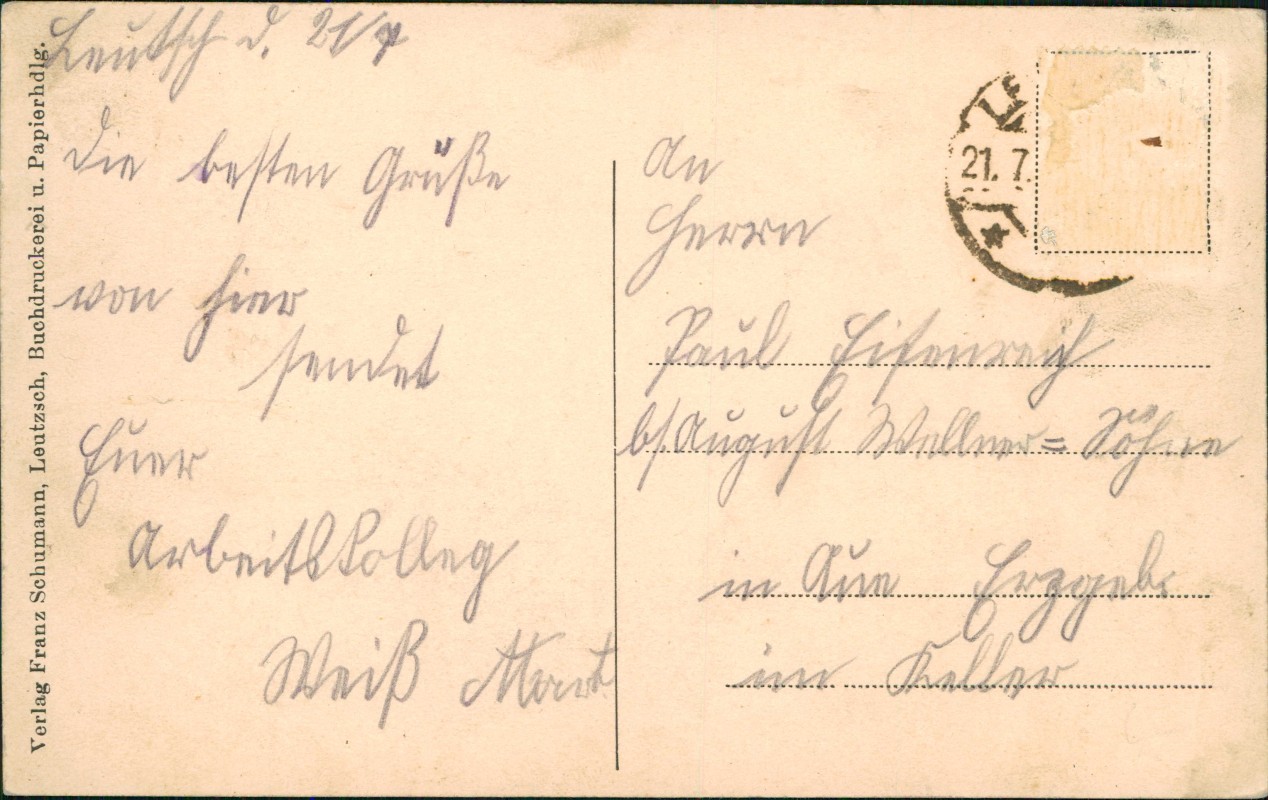 Leutsch d. 21/7
Die besten Grüße
von hier
sendet
Euer
Arbeitskolleg
Weiß Mart
An
Herrn
Paul Eisenreich
b/. August Wellner = Söhne
in Aue Erzgeb.
im Keller
21. 7.
Verlag Franz Schumann, Leutzsch, Buchdruckerei u. Papierhdlg.